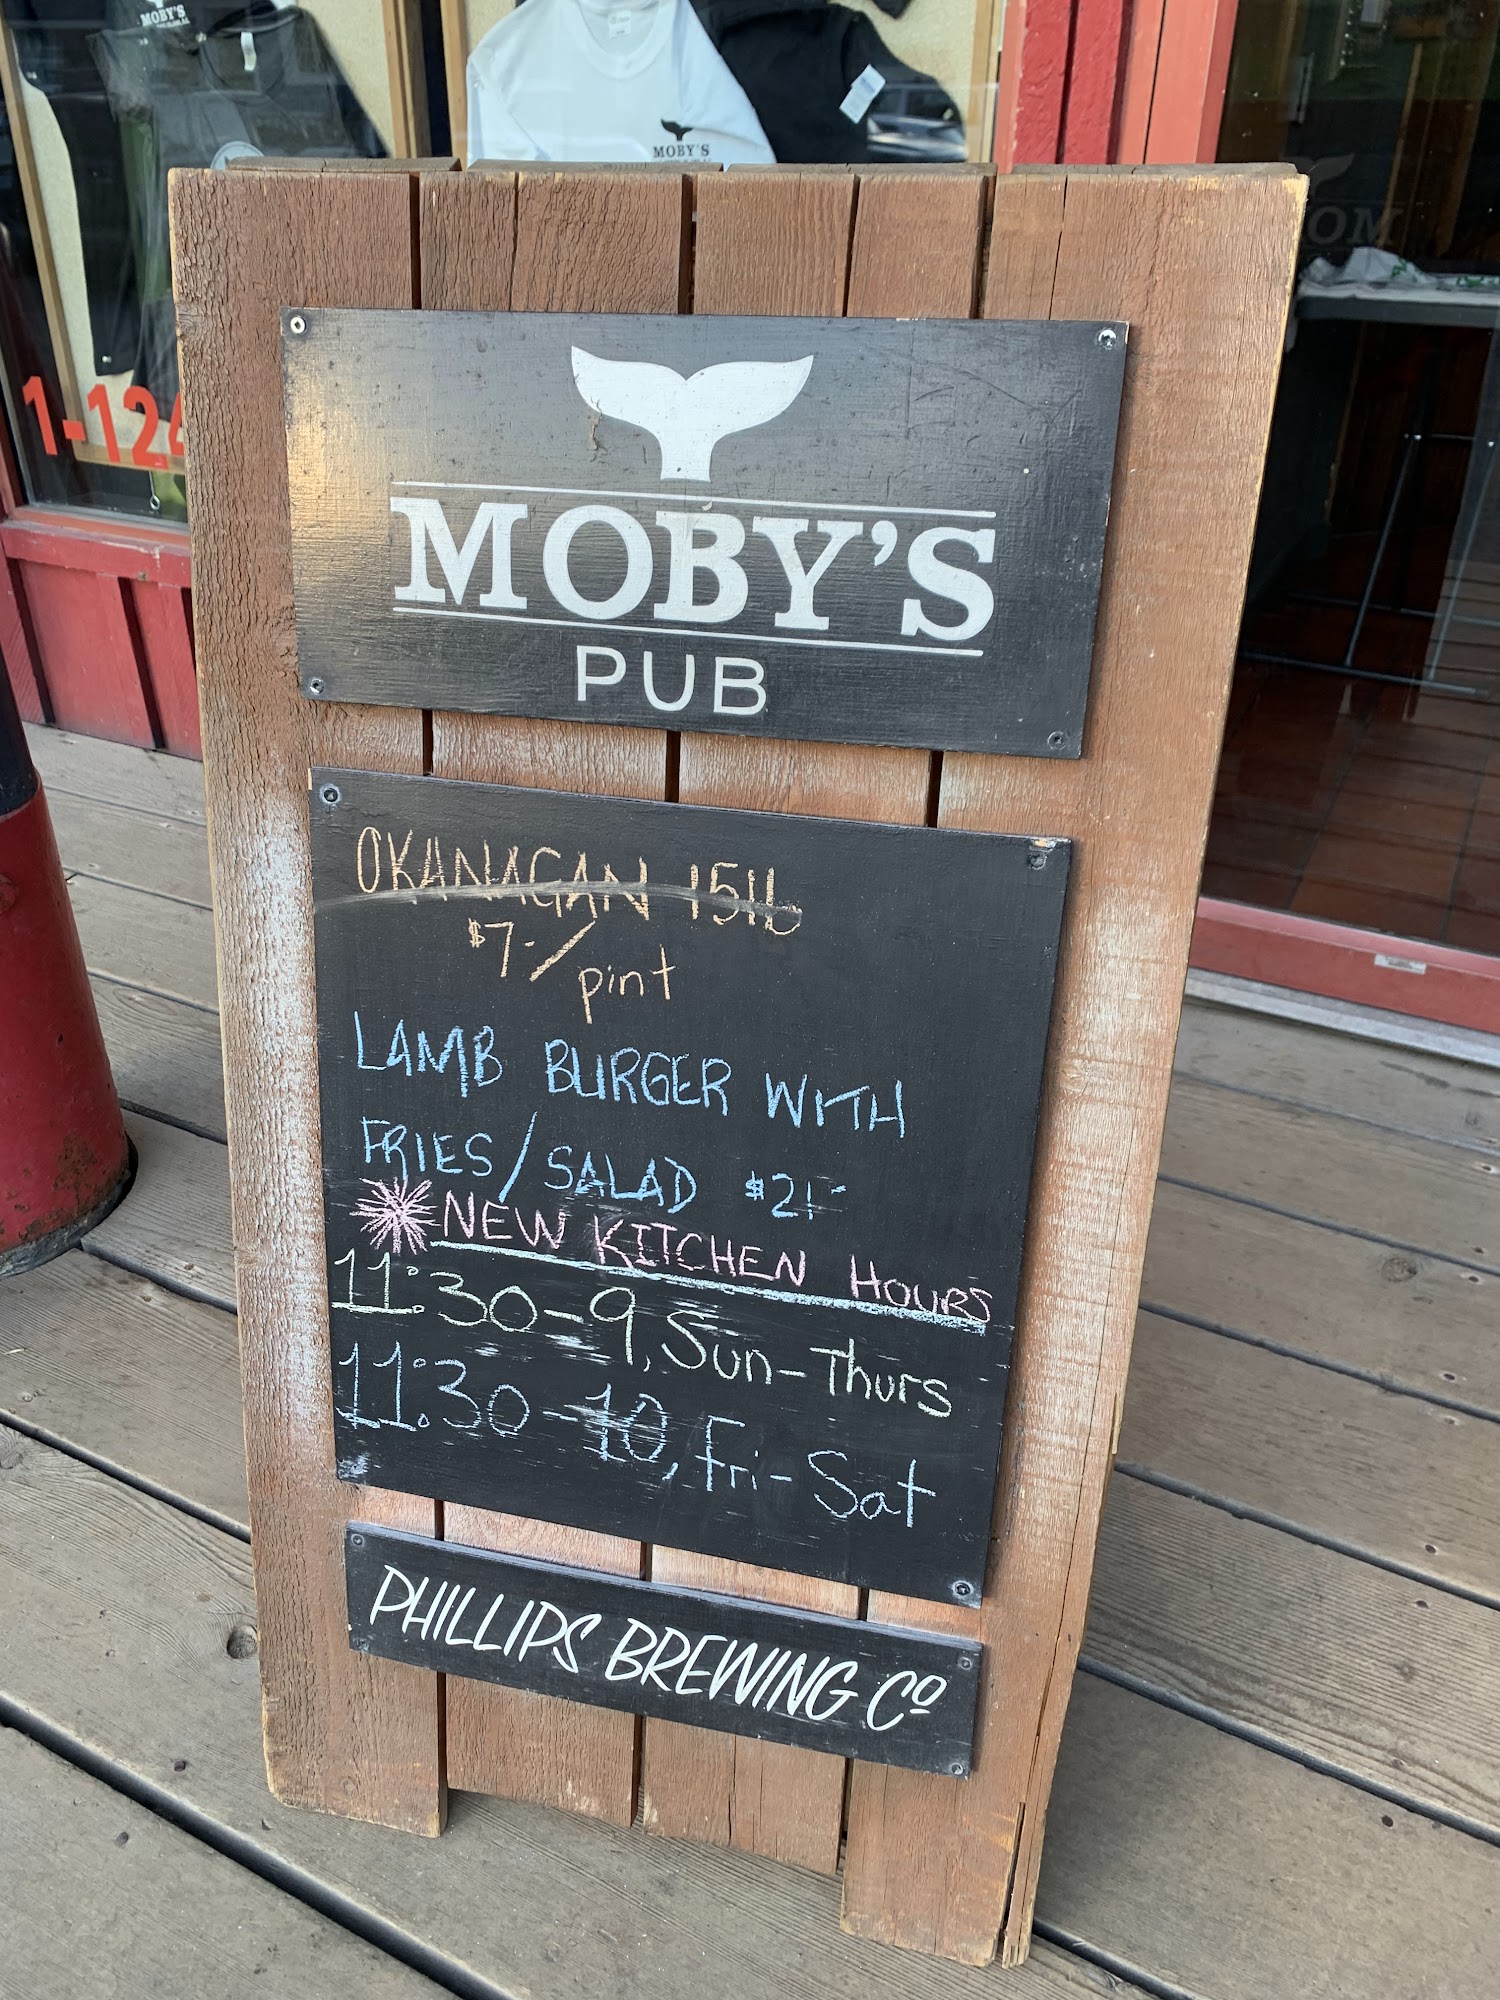 MOBY'S
MOBY'S
1-124
MOBY'S
PUB
OKANAGAN 1516
$7-/pint
LAMB BURGER WITH
FRIES/SALAD $21-
NEW KITCHEN HOURS
11:30-9, Sun-Thurs
11:30-10, Fri-Sat
PHILLIPS BREWING Cº